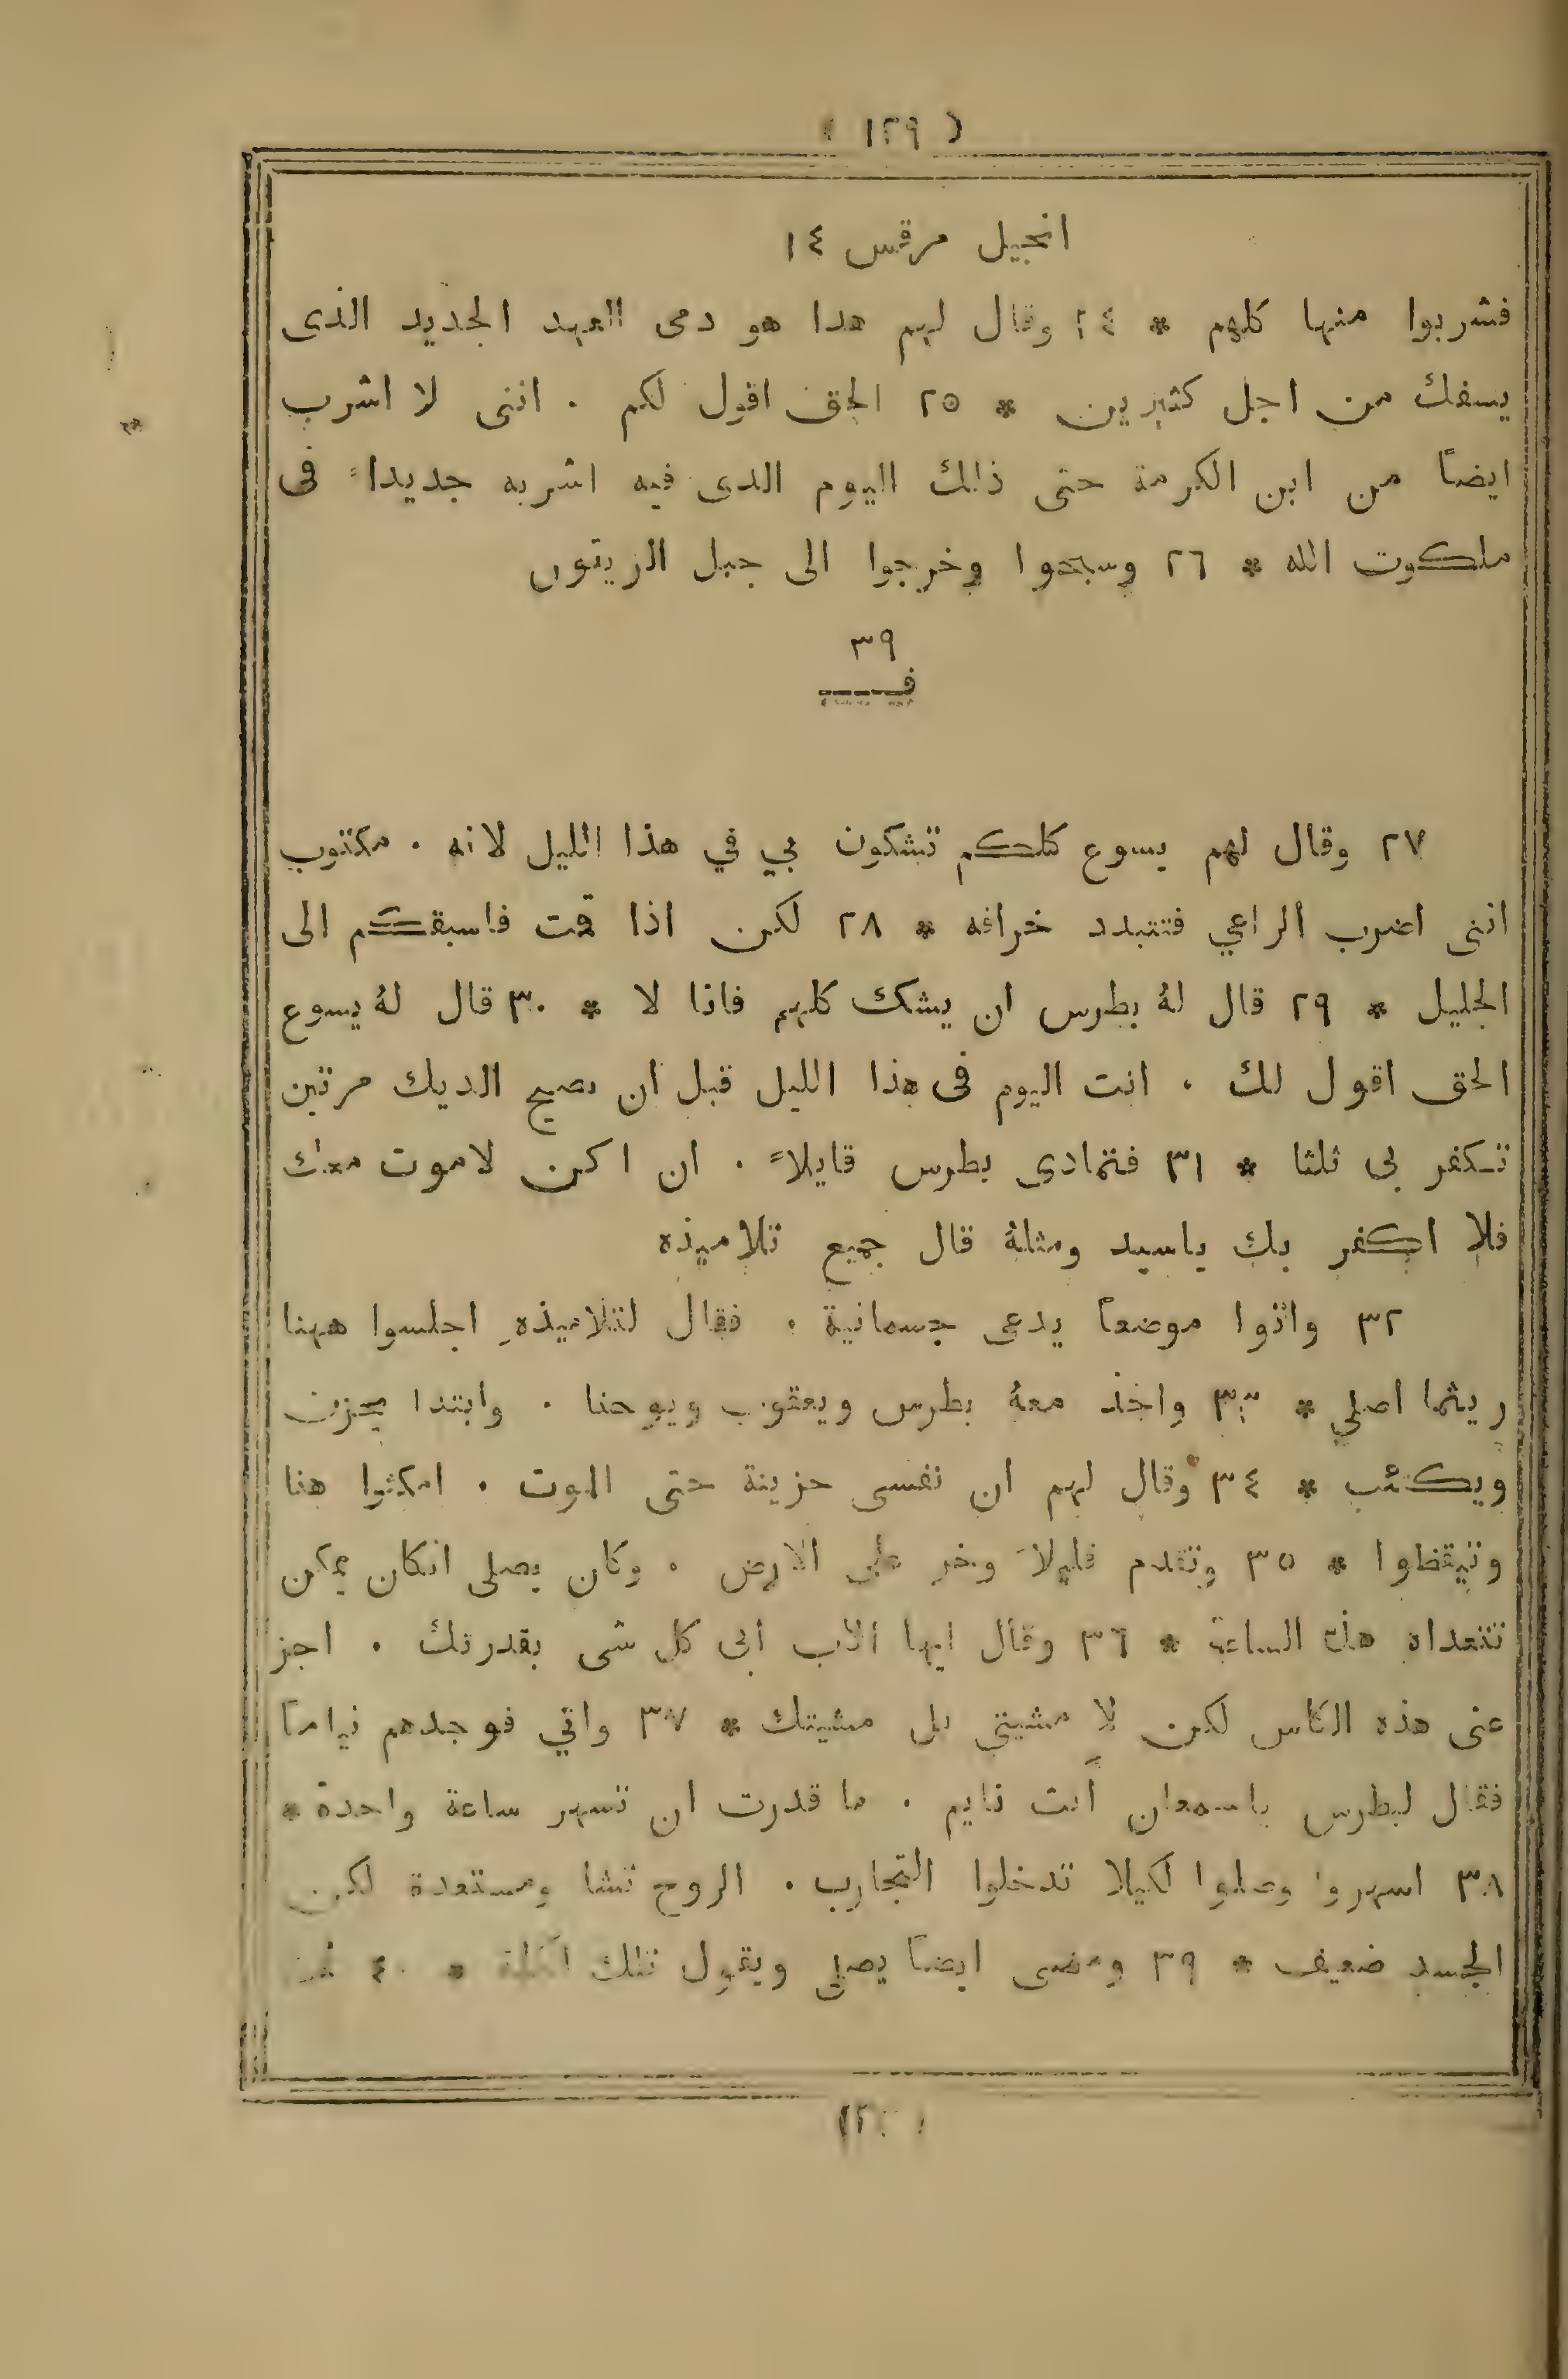 ( ١٢٩ )
انجيل مرقس ١٤
فشربوا منها كلهم * ٢٤ وقال لهم هدا هو دمى العهد الجديد الذى
يسفك من اجل كثيرين * ٢٥ الحق اقول لكم . اننى لا اشرب
ايضاً من ابن الكرمة حتى ذالك اليوم الدى فيه اشربه جديداً فى
ملكوت الله * ٢٦ وسبحوا وخرجوا الى جبل الزيتون
٣٩
ف
٢٧ وقال لهم يسوع كلكم تشكون بي في هذا الليل لانه . مكتوب
اننى اضرب الراعي فتتبدد خرافه * ٢٨ لكن اذا قمت فاسبقكم الى
الجليل * ٢٩ قال لهُ بطرس ان يشك كلهم فانا لا * ٣٠ قال لهُ يسوع
الحق اقول لك . انت اليوم فى هذا الليل قبل ان يصيح الديك مرتين
تكفر بى ثلثا * ٣١ فتمادى بطرس قايلاً . ان اكن لاموت معك
فلا اكفر بك ياسيد ومثلهُ قال جميع تلاميذه
٣٢ واتوا موضعاً يدعى جسمانية . فقال لتلاميذهِ اجلسوا ههنا
ريثما اصلي * ٣٣ واخذ معهُ بطرس ويعقوب ويوحنا . وابتدا يحزن
ويكتئب * ٣٤ وقال لهم ان نفسى حزينة حتى الموت . امكثوا هنا
وتيقظوا * ٣٥ وتقدم قليلاً وخر على الارض . وكان يصلى انكان يمكن
تتعداه هذه الساعة * ٣٦ وقال ايها الاب ابى كل شى بقدرتك . اجز
عنى هذه الكاس لكن لا مشيتي بل مشيتك * ٣٧ واتي فوجدهم نياماً
فقال لبطرس ياسمعان أنت نايم . ما قدرت ان تسهر ساعة واحدة *
٣٨ اسهروا وصلوا لكيلا تدخلوا التجارب . الروح تشا ومستعدة لكن
الجسد ضعيف * ٣٩ ومضى ايضاً يصلي ويقول تلك * ٤٠